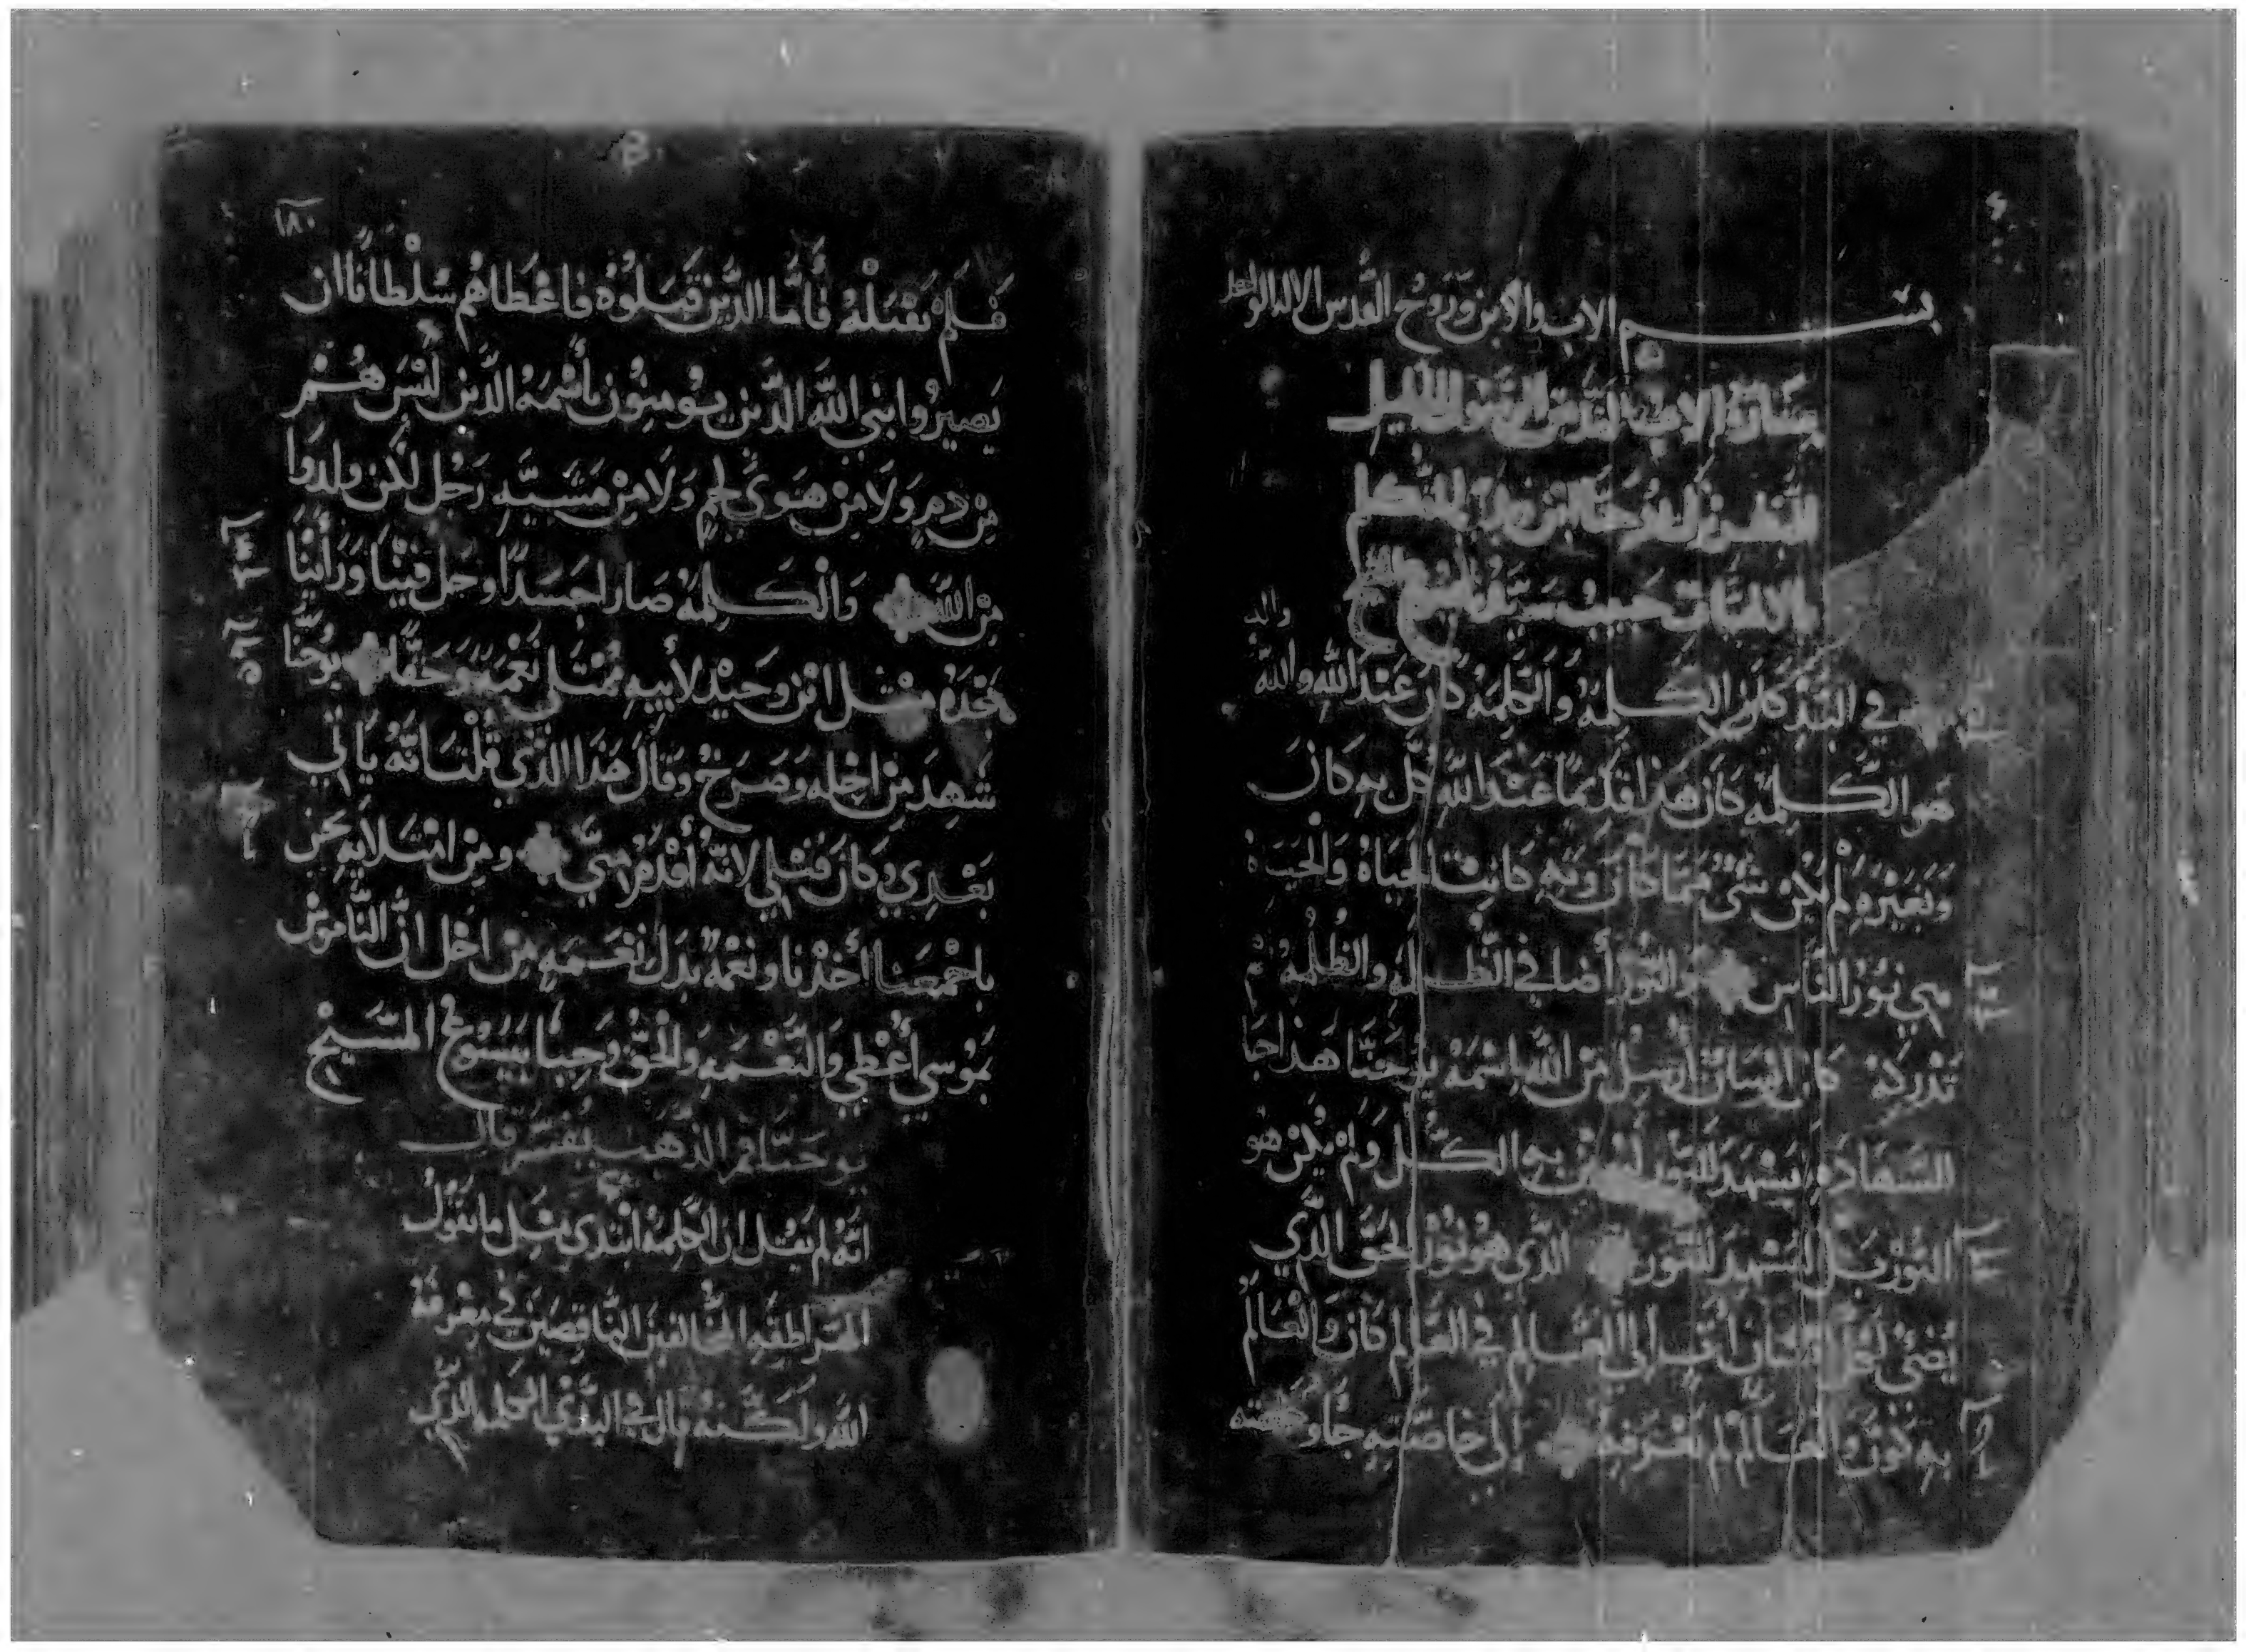 بسم الاب والابن وروح القدس الاله الواحد
بشارة الاب القديس الرسول الجليل
يوحنا ابن
حبيب سيدنا يسوع المسيح
في البدي كان الكلمه والكلمه كان عند الله والله
هو الكلمه كان هذا قديما عند الله كل به كان
وبغيره لم يكن شي مما كان وبه كانت الحياة والحياة
هي نور الناس والنور أضا في الظلمه والظلمه لم
تدركه كان انسان أرسل من الله اسمه يوحنا هذا جا
للشهادة ليشهد للنور ليومن به الكل ولم يكن هو
النور بل ليشهد للنور الذي هو نور الحق الذي
يضي لكل انسان ات الي العالم في العالم كان والعالم
به كون والعالم لم يعرفه الي خاصته جا وخاصته
١٨٠
فلم تقبله فأما الذين قبلوه فاعطاهم سلطانا ان
يصيروا ابني الله الذين يومنون بأسمه الذين ليس هم
من دم ولا من هوي لحم ولا من مشيه رجل لكن ولدوا
من الله والكلمه صار جسدا وحل فينا وراينا
مجده مثل ابن وحيد لأبيه ممتلي نعمه وحقا يوحنا
شهد من اجله وصرخ وقال هذا الذي قلت انه ياتي
بعدي وكان قبلي لانه أقدم مني ومن امتلايه نحن
باجمعنا أخذنا ونعمه بدل نعمه من اجل ان الناموس
بموسي أعطي والنعمه والحق وجبا بيسوع المسيح
يوحنا فم الذهب يفسر قال
انه لم يقل ان الكلمه ابتدي مثل ما يقول
الهراطقه المخالفين الناقصين في معرفة
الله ولكنه قال في البدي الكلمه الذي